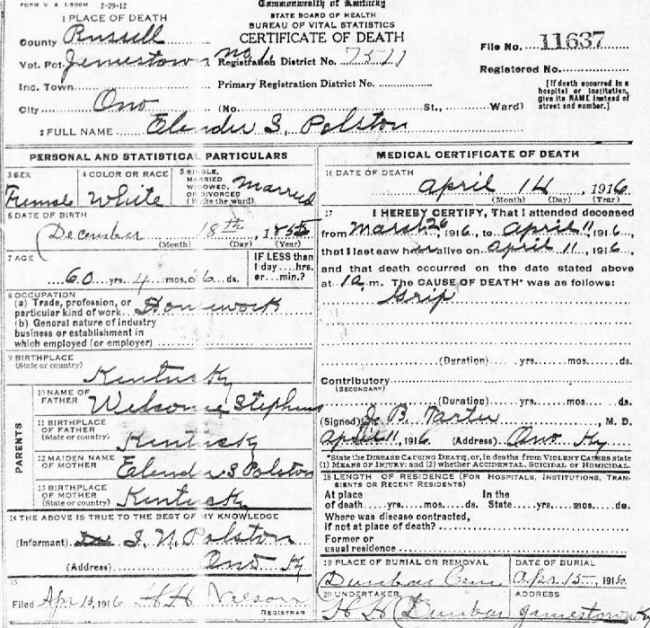 FORM V. S. 2-29-12
Commonwealth of Kentucky
STATE BOARD OF HEALTH
BUREAU OF VITAL STATISTICS
CERTIFICATE OF DEATH
1 PLACE OF DEATH
County Russell
Vot. Pct. Jamestown No 1 Registration District No. 7511
File No. 11637
Registered No.
Inc. Town Primary Registration District No.
[If death occurred in a hospital or institution, give its NAME instead of street and number.]
City Ono (No. St., Ward)
2 FULL NAME Elender S. Polston
PERSONAL AND STATISTICAL PARTICULARS
3 SEX Female
4 COLOR OR RACE White
5 SINGLE, MARRIED WIDOWED, OR DIVORCED (Write the word) Married
6 DATE OF BIRTH
December 18th, 185
(Month) (Day) (Year)
7 AGE
60 yrs. 4 mos. 6 ds.
IF LESS than 1 day....hrs. or....min.?
8 OCCUPATION
(a) Trade, profession, or particular kind of work Housework
(b) General nature of industry business or establishment in which employed (or employer)
9 BIRTHPLACE
(State or country) Kentucky
PARENTS
10 NAME OF FATHER Stephens
11 BIRTHPLACE OF FATHER (State or country) Kentucky
12 MAIDEN NAME OF MOTHER Elender S Polston
13 BIRTHPLACE OF MOTHER (State or country) Kentucky
14 THE ABOVE IS TRUE TO THE BEST OF MY KNOWLEDGE
(Informant) J. N. Polston
(Address) Ono Ky
15
Filed Apr 14, 1916 H H Nelson
REGISTRAR
MEDICAL CERTIFICATE OF DEATH
16 DATE OF DEATH
April 14, 1916
(Month) (Day) (Year)
17 I HEREBY CERTIFY, That I attended deceased
from March 26, 1916, to April 11, 1916,
that I last saw her alive on April 11, 1916,
and that death occurred on the date stated above
at 1 a. m. The CAUSE OF DEATH* was as follows:
Grip
(Duration) yrs. mos. ds.
Contributory
(SECONDARY)
(Duration) yrs. mos. ds.
(Signed) J. B. Tarter, M. D.
April 11, 1916 (Address) Ono Ky
*State the DISEASE CAUSING DEATH, or, in deaths from VIOLENT CAUSES state (1) MEANS OF INJURY; and (2) whether ACCIDENTAL, SUICIDAL or HOMICIDAL.
18 LENGTH OF RESIDENCE (FOR HOSPITALS, INSTITUTIONS, TRANSIENTS OR RECENT RESIDENTS)
At place of death yrs. mos. ds. In the State yrs. mos. ds.
Where was disease contracted, if not at place of death?
Former or usual residence
19 PLACE OF BURIAL OR REMOVAL
Dunbar Cem
DATE OF BURIAL
Apr. 15, 1916
20 UNDERTAKER
H H Dunbar
ADDRESS
Jamestown Ky